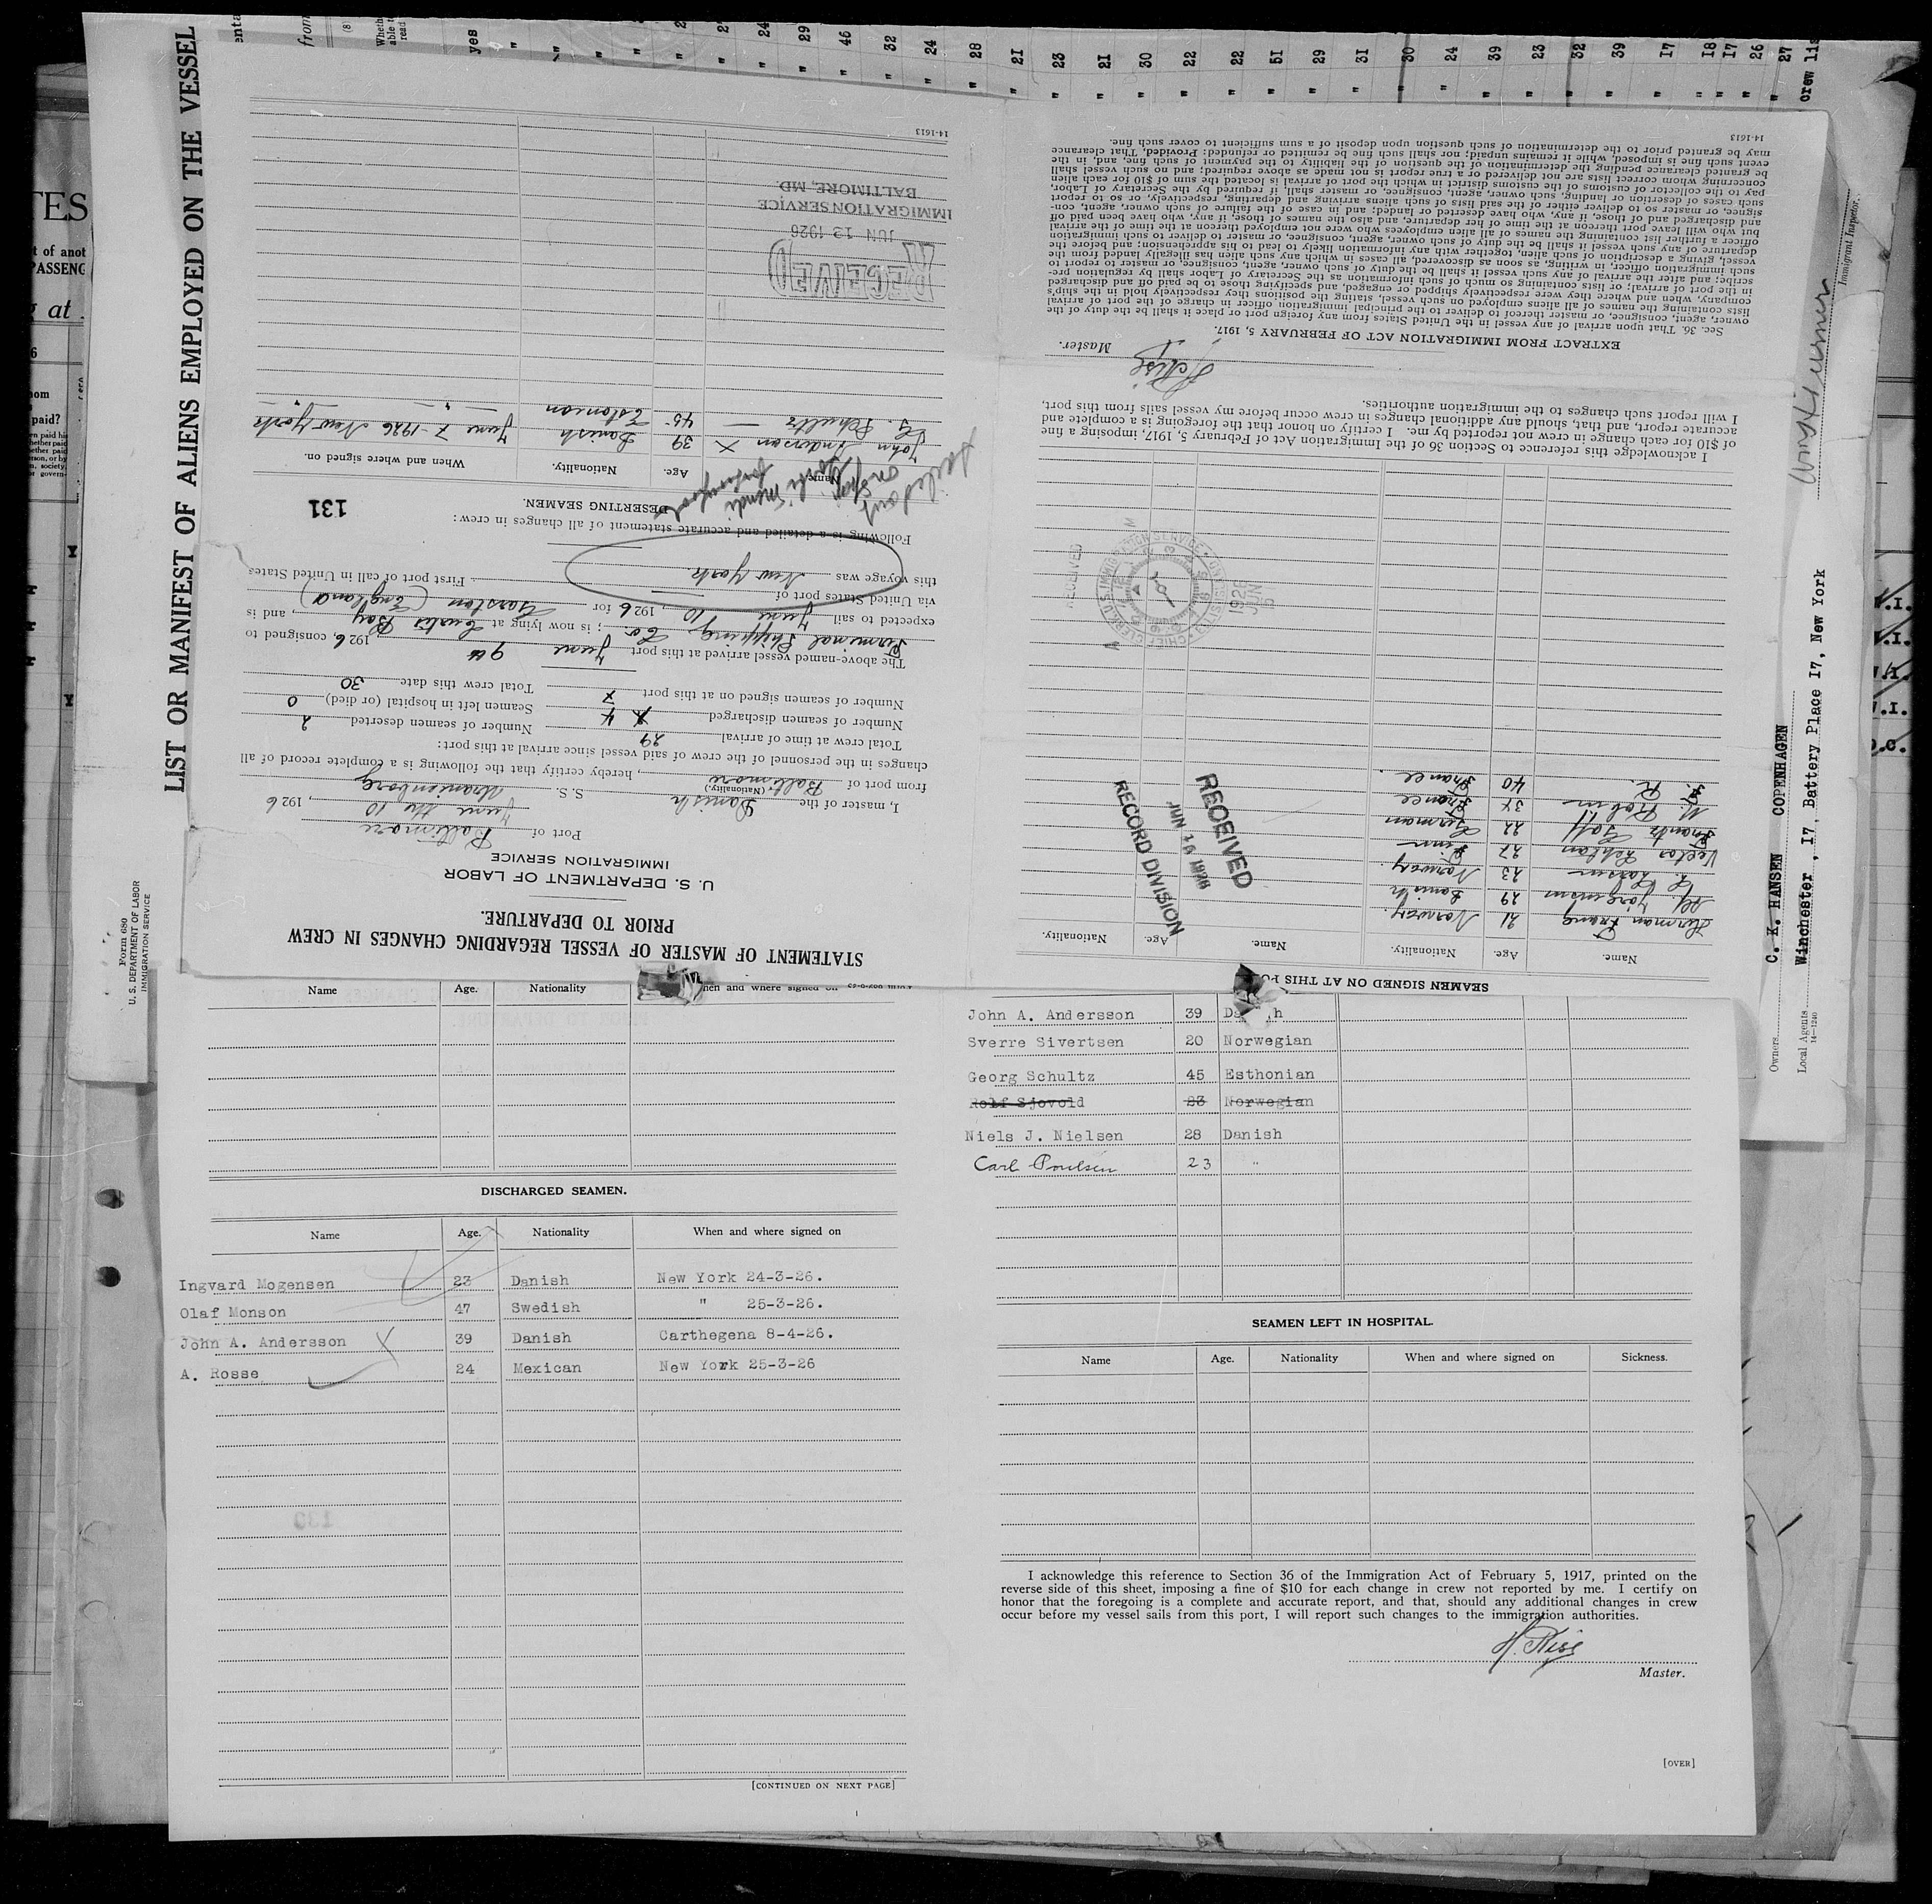 LIST OR MANIFEST OF ALIENS EMPLOYED ON THE VESSEL
Form 680
U. S. DEPARTMENT OF LABOR
IMMIGRATION SERVICE
STATEMENT OF MASTER OF VESSEL REGARDING CHANGES IN CREW
PRIOR TO DEPARTURE.
U. S. DEPARTMENT OF LABOR
IMMIGRATION SERVICE
Port of Baltimore
June the 10, 1926
I, master of the Danish S. S. Uranienborg
(Nationality.)
from port of Baltimore, hereby certify that the following is a complete record of all
changes in the personnel of the crew of said vessel since arrival at this port:
Total crew at time of arrival 29 Number of seamen deserted 2
Number of seamen discharged 4 Seamen left in hospital (or died) 0
Number of seamen signed on at this port 7 Total crew this date 30
The above-named vessel arrived at this port June 9th 1926, consigned to
Terminal Shipping Co. ; is now lying at Curtis Bay, and is
expected to sail June 10, 1926 for Garston (England)
via United States port of . First port of call in United States
this voyage was New York.
Following is a detailed and accurate statement of all changes in crew:
DESERTING SEAMEN.
131
Name. Age. Nationality. When and where signed on.
John Anderson X 39 Danish June 7-1926 New York
G. Schultz — 45 Estonian — " —
RECEIVED
JUN 12 1926
IMMIGRATION SERVICE
BALTIMORE, MD.
14-1613
SEAMEN SIGNED ON AT THIS PO
Name. Age. Nationality. Name. Age. Nationality.
Herman Frang 21 Norway.
Alf Jörgensen 29 Danish
L. Larsen 23 Norway.
Vector Lehtan 27 Finn
Frantz Gall 22 German
M. Robin 34 France
F. R. 40 France.
RECEIVED
JUN 16 1926
RECORD DIVISION
RECEIVED
1926
JUN
I acknowledge this reference to Section 36 of the Immigration Act of February 5, 1917, imposing a fine
of $10 for each change in crew not reported by me. I certify on honor that the foregoing is a complete and
accurate report, and that, should any additional changes in crew occur before my vessel sails from this port,
I will report such changes to the immigration authorities.
H. Riise
Master.
EXTRACT FROM IMMIGRATION ACT OF FEBRUARY 5, 1917.
Sec. 36. That upon arrival of any vessel in the United States from any foreign port or place it shall be the duty of the
owner, agent, consignee, or master thereof to deliver to the principal immigration officer in charge of the port of arrival
lists containing the names of all aliens employed on such vessel, stating the positions they respectively hold in the ship's
company, when and where they were respectively shipped or engaged, and specifying those to be paid off and discharged
in the port of arrival; or lists containing so much of such information as the Secretary of Labor shall by regulation pre-
scribe; and after the arrival of any such vessel it shall be the duty of such owner, agent, consignee, or master to report to
such immigration officer, in writing, as soon as discovered, all cases in which any such alien has illegally landed from the
vessel, giving a description of such alien, together with any information likely to lead to his apprehension; and before the
departure of any such vessel it shall be the duty of such owner, agent, consignee, or master to deliver to such immigration
officer a further list containing the names of all alien employees who were not employed thereon at the time of the arrival
but who will leave port thereon at the time of her departure, and also the names of those, if any, who have been paid off
and discharged and of those, if any, who have deserted or landed; and in case of the failure of such owner, agent, con-
signee, or master so to deliver either of the said lists of such aliens arriving and departing, respectively, or so to report
such cases of desertion or landing, such owner, agent, consignee, or master shall, if required by the Secretary of Labor,
pay to the collector of customs of the customs district in which the port of arrival is located the sum of $10 for each alien
concerning whom correct lists are not delivered or a true report is not made as above required; and no such vessel shall
be granted clearance pending the determination of the question of the liability to the payment of such fine, and, in the
event such fine is imposed, while it remains unpaid; nor shall such fine be remitted or refunded: Provided, That clearance
may be granted prior to the determination of such question upon deposit of a sum sufficient to cover such fine.
14-1613
Immigrant Inspector.
Owners C. K. HANSEN COPENHAGEN
Local Agents Winchester, I7, Battery Place I7, New York
14-1240
Name Age. Nationality When and where signed on
DISCHARGED SEAMEN.
Name Age. Nationality When and where signed on
Ingvard Mogensen 23 Danish New York 24-3-26.
Olaf Monson 47 Swedish " 25-3-26.
John A. Andersson X 39 Danish Carthegena 8-4-26.
A. Rosse 24 Mexican New York 25-3-26
[CONTINUED ON NEXT PAGE]
John A. Andersson 39 Da h
Sverre Sivertsen 20 Norwegian
Georg Schultz 45 Esthonian
Rolf Sjovold 23 Norwegian
Niels J. Nielsen 28 Danish
Carl Poulsen 23 "
SEAMEN LEFT IN HOSPITAL.
Name Age. Nationality When and where signed on Sickness.
I acknowledge this reference to Section 36 of the Immigration Act of February 5, 1917, printed on the
reverse side of this sheet, imposing a fine of $10 for each change in crew not reported by me. I certify on
honor that the foregoing is a complete and accurate report, and that, should any additional changes in crew
occur before my vessel sails from this port, I will report such changes to the immigration authorities.
H. Riise
Master.
[OVER]